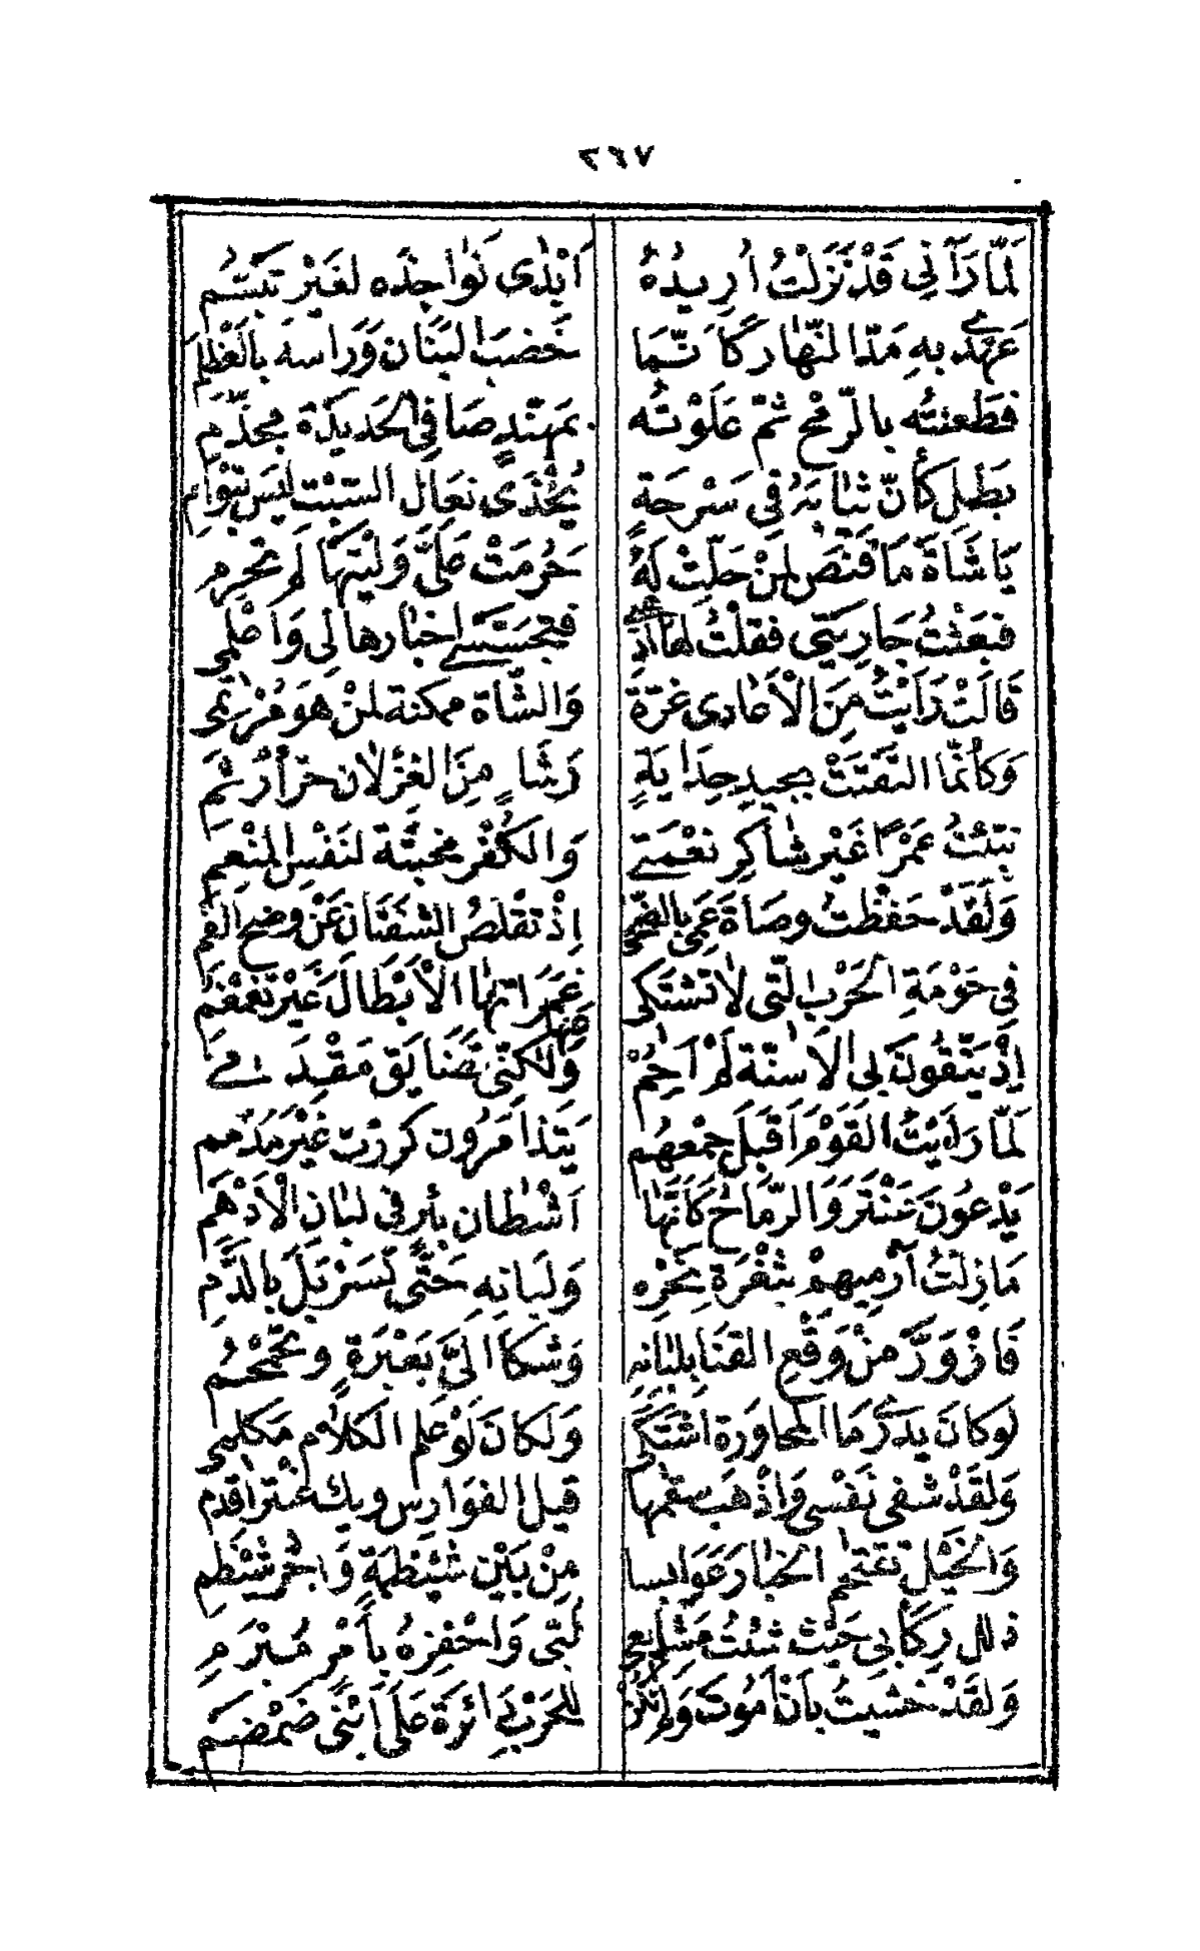 ٢٦٧
لَمّا رَآنِي قَدْ نَزَلْتُ أُرِيدُهُ أَبْدَى نَوَاجِذَه لغَيْر تَبَسُّمِ
عَهْدي بِهِ مَدّ النّهَار كَأنّمَا خَضبَ البَنَان وَرَاسه بالعَظْلَم
فطَعنتُه بالرّمْحِ ثمّ عَلَوْتُه بمَهنّدٍ صَافِي الحَديدَة مِخْذَمِ
بَطَلٍ كَأنّ ثيَابَهُ فِي سَرْحَةٍ يُحْذَى نعَال السّبْت ليسَ بتَوْأمِ
يَا شَاةَ مَا قَنَصٍ لِمَنْ حَلّتْ لَهُ حَرُمَتْ عَلَيَّ وَلَيْتَهَا لَم تَحْرمِ
فَبَعَثْتُ جَارِيَتِي فقلْتُ لهَا اذْهبي فتجَسّسي اخبارها لِي وَاعْلَمي
قَالَتْ رَأيْتُ مِنَ الْأعَادِى غرّةً وَالشّاة ممكنة لمنْ هوَ مُرْتَمى
وَكأنّما التَفَتَتْ بجيدِ جِدَايَةٍ رَشَأٍ مِنَ الغِزْلان حرّ أرْثَم
نبّئتُ عَمْرًا غَيْر شاكِرِ نعْمَتي وَالكُفْر مخبثَة لنَفْس المنْعِم
وَلَقَدْ حَفظْتُ وصَاةَ عَمّي بالضّحى إذْ تقْلصُ الشفَتَان عَنْ وضح الفَم
فِي حَوْمَةِ الحَرْب الّتي لا تشتَكي غمَرَاتهَا الأبْطَال غَيْر تغمْغُم
إذْ يَتّقُونَ بي الأسنّة لَمْ أخِمْ عَنْهَا وَلكنّى تضَايَق مَقْدَمي
لَمّا رَأيْتُ القَوْمَ أقْبَلَ جمْعهُم يَتَذامَرُون كررْت غَيْر مذَمّم
يَدْعُونَ عَنْتَرَ وَالرّمَاحُ كَأنّهَا أشْطَان بئْرٍ في لبَان الأدْهَم
مَا زلْتُ أرْميهمْ بثغْرَة نَحْرِه وَلَبَانِهِ حَتّى تَسَرْبَلَ بالدَّمِ
فَازْوَرَّ منْ وَقْعِ القنَا بلبَانِهِ وَشكَا إلَيَّ بعَبْرَةٍ وتَحَمْحُم
لَو كانَ يدْري مَا المحَاورَة اشتَكَى وَلَكانَ لَوْ عَلم الكَلام مكَلّمي
وَلَقَدْ شفى نَفْسى وَأذْهَب سقْمهَا قيل الفوَارِس ويك عَنْتر أقْدم
وَالخَيْل تقتحم الخبَار عَوَابسا منْ بَيْن شيْظمَةٍ وَأجْرَد شَيْظم
ذلل رِكَابي حَيْث شئْتُ مشَايعي لُبّى وَأحْفِزهُ بأمْرٍ مُبْرَمِ
وَلقَدْ خَشيتُ بأنْ أمُوتَ وَلم تكُنْ للحَرْب دَائرَة عَلَى ابْنَيْ ضَمْضَم